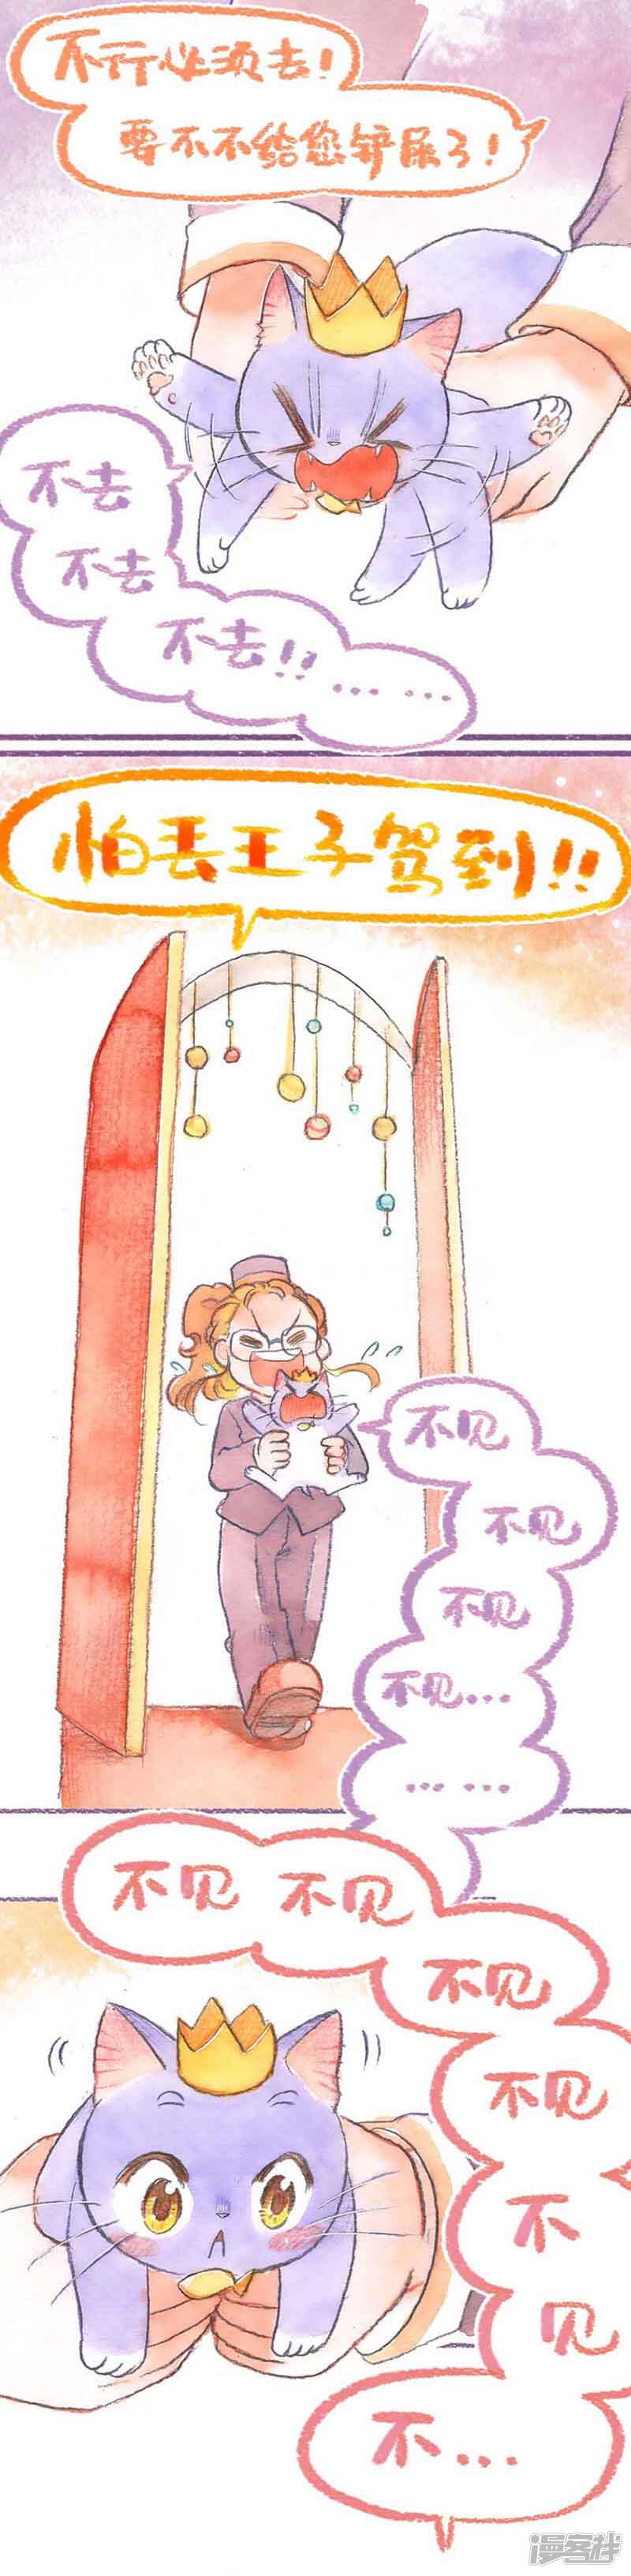 不行必须去！
要不不给您铲屎了！
不去
不去
不去!!……
怕丢王子驾到!!
不见
不见
不见
不见…
……
不见 不见
不见
不见
不
见
不…
漫客栈